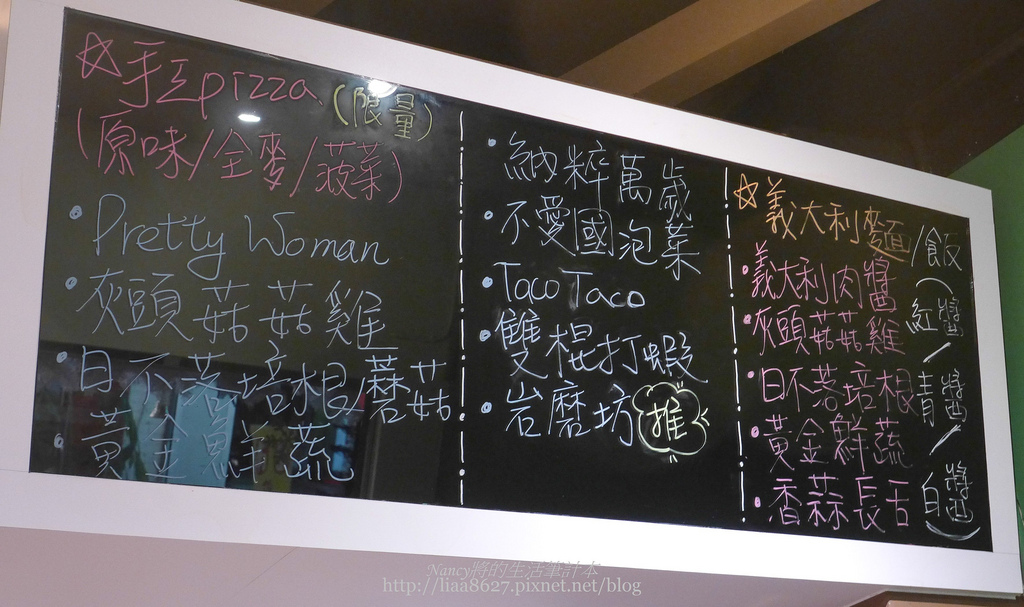 ☆手工pizza(限量)
(原味/全麥/菠菜)
• Pretty Woman
• 灰頭菇菇雞
• 日不落培根蘑菇
• 黃金鮮蔬
• 納粹萬歲
• 不愛國泡菜
• Taco Taco
• 雙棍打蝦
• 岩磨坊 推
☆義大利麵/飯
(紅醬/青醬/白醬)
• 義大利肉醬
• 灰頭菇菇雞
• 日不落培根
• 黃金鮮蔬
• 香蒜長舌
Nancy將的生活筆計本
http://liaa8627.pixnet.net/blog